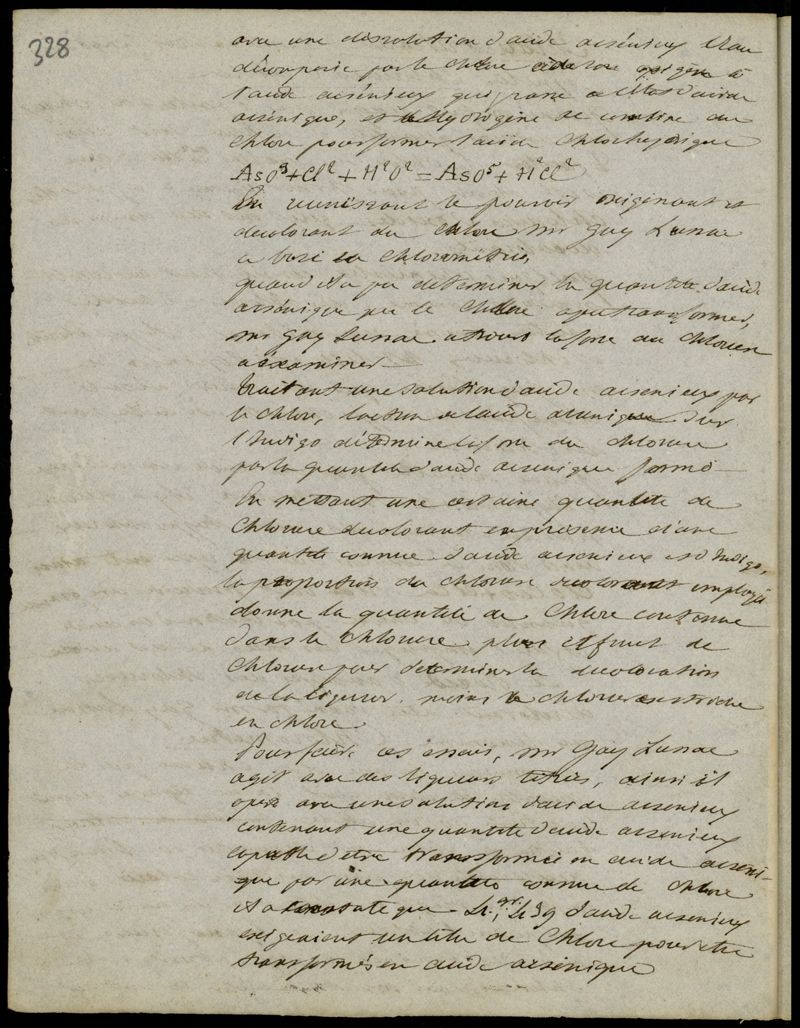 328
avec une dissolution d'acide arsénieux l'eau
décomposée par le chlore cède son oxigène à
l'acide arsénieux qui passe à l'état d'acide
arsénique, et l'hydrogène se combine au
chlore pour former l'acide chlorhydrique
AsO³ + Cl² + H²O² = AsO⁵ + H²Cl²
En réunissant le pouvoir oxigénant et
décolorant du chlore mr Gay Lussac
a basé sa chlorométrie,
quand il a pu déterminer la quantité d'acide
arsénique que le chlore a pu transformer,
mr Gay Lussac la force du chlorure
à examiner
traitant une solution d'acide arsenieux par
le chlore, l'action de l'acide arsenique sur
l'Indigo détermine la force du chlorure
par la quantité d'acide arsenique formé
En mettant une certaine quantité de
chlorure decolorant en présence d'une
quantité connue d'acide arsenieux et d'Indigo,
la proportion du chlorure decolorant employé
donne la quantité de chlore contenue
dans le chlorure plus il faut de
chlorure pour determiner la decoloration
de la liqueur, moins le chlorure est riche
en chlore
Pour faire ces essais, mr Gay Lussac
agit avec des liqueurs titrées, ainsi il
opere avec une solution d'acide arsenieux
contenant une quantité d'acide arsenieux
capable d'etre transformée en acide arseni-
que par une quantité connue de chlore
il a constaté que gr. 439 d'acide arsenieux
exigeaient un litre de chlore pour etre
transformés en acide arsénique